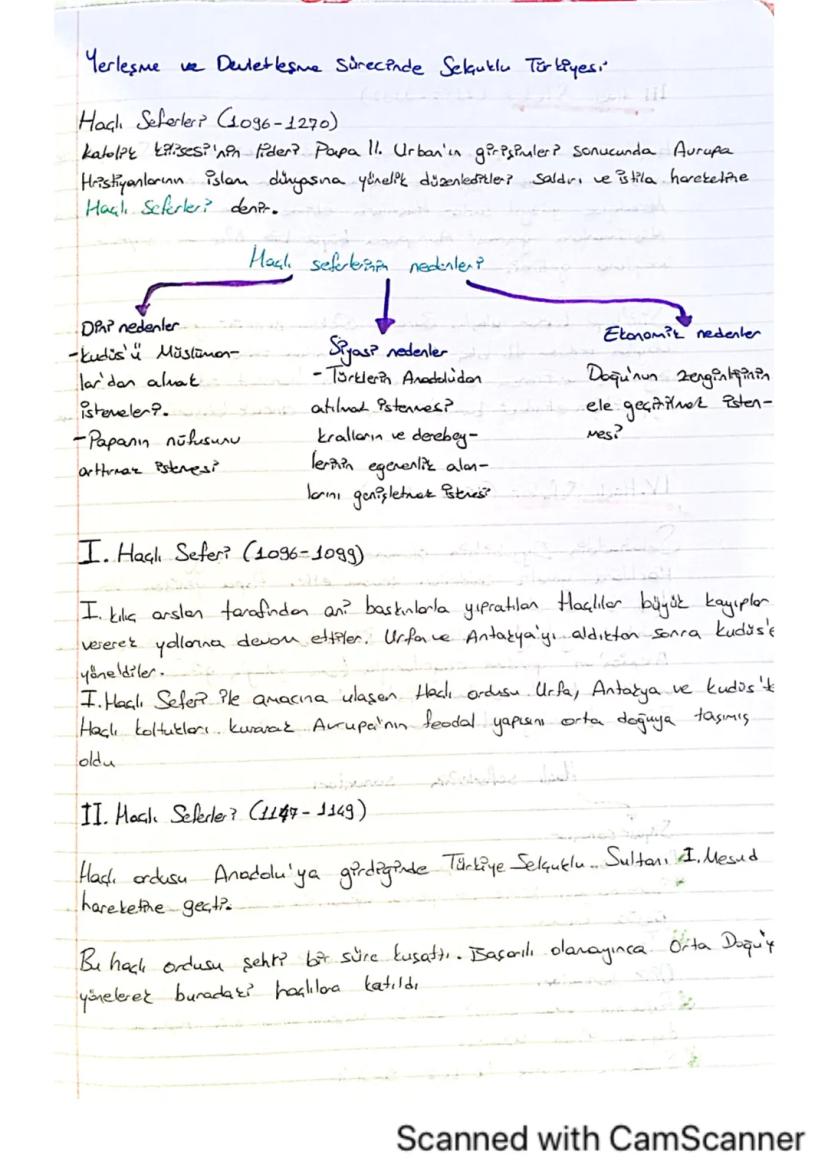 Yerleşme ve Devletleşme Sürecinde Selçuklu Türkiyesi
Haçlı Seferleri (1096-1270)
Katolik kilisesi'nin lideri Papa II. Urban'ın girişimleri sonucunda Avrupa
Hristiyanlarının islam dünyasına yönelik düzenledikleri saldırı ve istila hareketine
Haçlı Seferleri denir.
Haçlı seferlerinin nedenleri
Dini nedenler
-Kudüs'ü Müslüman-
lar'dan almak
istemeleri.
-Papanın nüfusunu
arttırmak istemesi
Siyasi nedenler
-Türklerin Anadoludan
atılmak istenmesi
kralların ve derebey-
lerinin egemenlik alan-
larını genişletmek istemesi
Ekonomik nedenler
Doğu'nun zenginliğinin
ele geçirilmek isten-
mesi
I. Haçlı Seferi (1096-1099)
I. kılıç arslan tarafından ani baskınlarla yıpratılan Haçlılar büyük kayıplar
vererek yollarına devam ettiler. Urfa ve Antakya'yı aldıktan sonra kudüs'e
yöneldiler.
I. Haçlı Seferi ile amacına ulaşan Haçlı ordusu Urfa, Antakya ve kudüs'te
Haçlı kontlukları kurarak Avrupa'nın feodal yapısını orta doğuya taşımış
oldu
II. Haçlı Seferleri (1147-1149)
Haçlı ordusu Anadolu'ya girdiğinde Türkiye Selçuklu Sultanı I. Mesud
hareketine geçti.
Bu haçlı ordusu şehri bir süre kuşattı. Başarılı olamayınca Orta Doğu'y
yönelerek buradaki haçlılara katıldı
Scanned with CamScanner